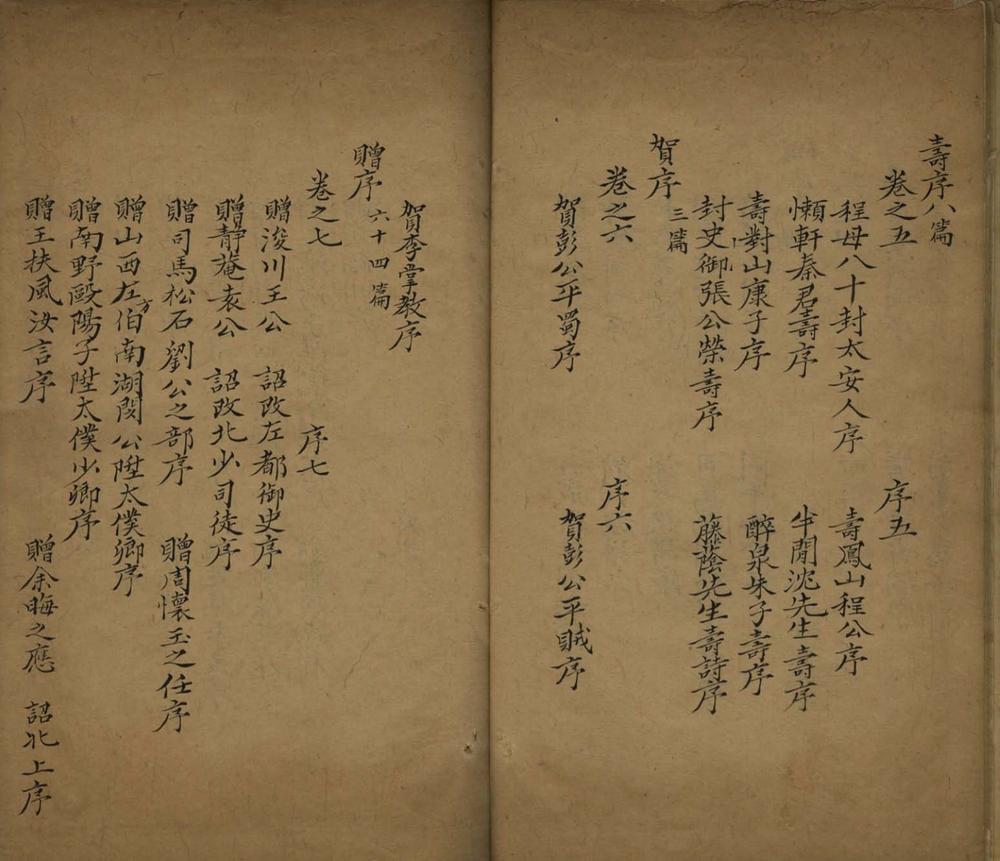 壽序八篇
卷之五 序五
程母八十封太安人序 壽鳳山程公序
懶軒秦君壽序 半閒沈先生壽序
壽對山康子序 醉泉朱子壽序
封史御張公榮壽序 藤蔭先生壽詩序
賀序三篇
卷之六 序六
賀彭公平蜀序 賀彭公平賊序
賀李掌教序
贈序六十四篇
卷之七 序七
贈浚川王公 詔改左都御史序
贈靜菴袁公 詔改北少司徒序
贈司馬松石劉公之部序 贈周懷玉之任序
贈山西左方伯南湖閔公陞太僕卿序
贈南野歐陽子陞太僕少卿序
贈王扶風汝言序 贈余晦之應 詔北上序